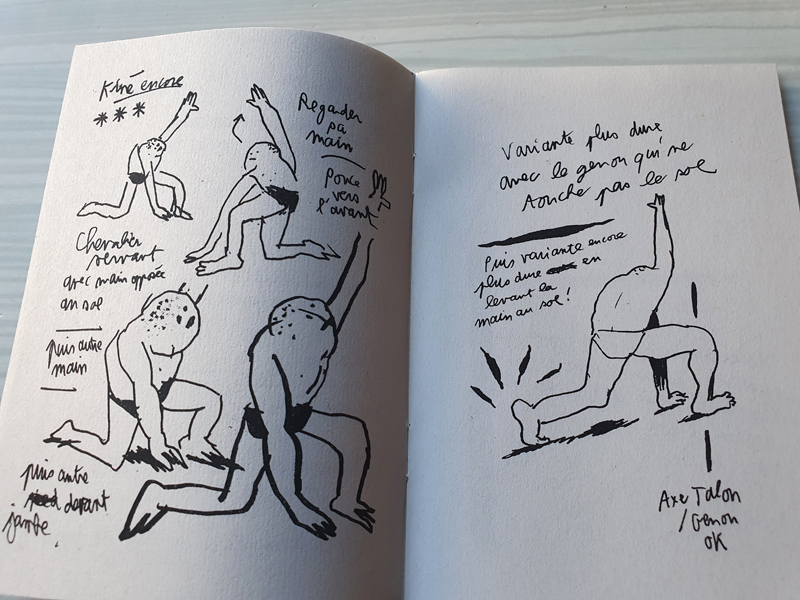 Kiné encore
***
Regarder
sa
main
pouce
vers
l'avant
Chevalier
servant
avec main opposée
au sol
puis autre
main
puis autre
devant
jambe.
Variante plus dure
avec le genou qui ne
touche pas le sol
Puis variante encore
plus dure en
levant la
main au sol!
Axe Talon
/Genou
OK